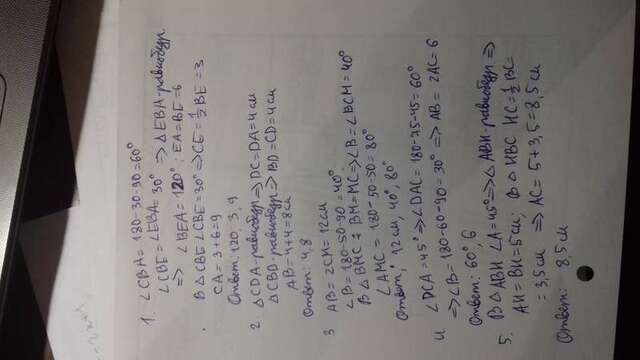 1. ∠CBA = 180-30-90=60°
∠CBE = ∠EBA = 30° ⇒ △EBA-равнобедр.
⇒ ∠BEA = 120°; EA=BE=6
В △CBE ∠CBE=30° ⇒ CE=½BE=3
CA = 3+6=9
Ответ: 120, 3, 9
2. △CDA-равнобедр ⇒ DC=DA=4 см
△CBD-равнобедр ⇒ BD=CD=4см
AB=4+4=8см
Ответ: 4,8
3 AB=2CM=12см
∠B=180-50-90=40°
В △BMC : BM=MC ⇒ ∠B=∠BCM=40°
∠AMC = 180-50-50=80°
Ответ: 12см, 40°, 80°
4. ∠DCA=45° ⇒ ∠DAC = 180-75-45=60°
⇒ ∠B=180-60-90=30° ⇒ AB = 2AC=6
Ответ: 60°, 6
5. В △ABH ∠A=45° ⇒ △ABH-равнобедр ⇒
AH=BH=5см; В △HBC HC=½BC=
=3,5см ⇒ AC=5+3,5=8,5см
Ответ: 8,5см